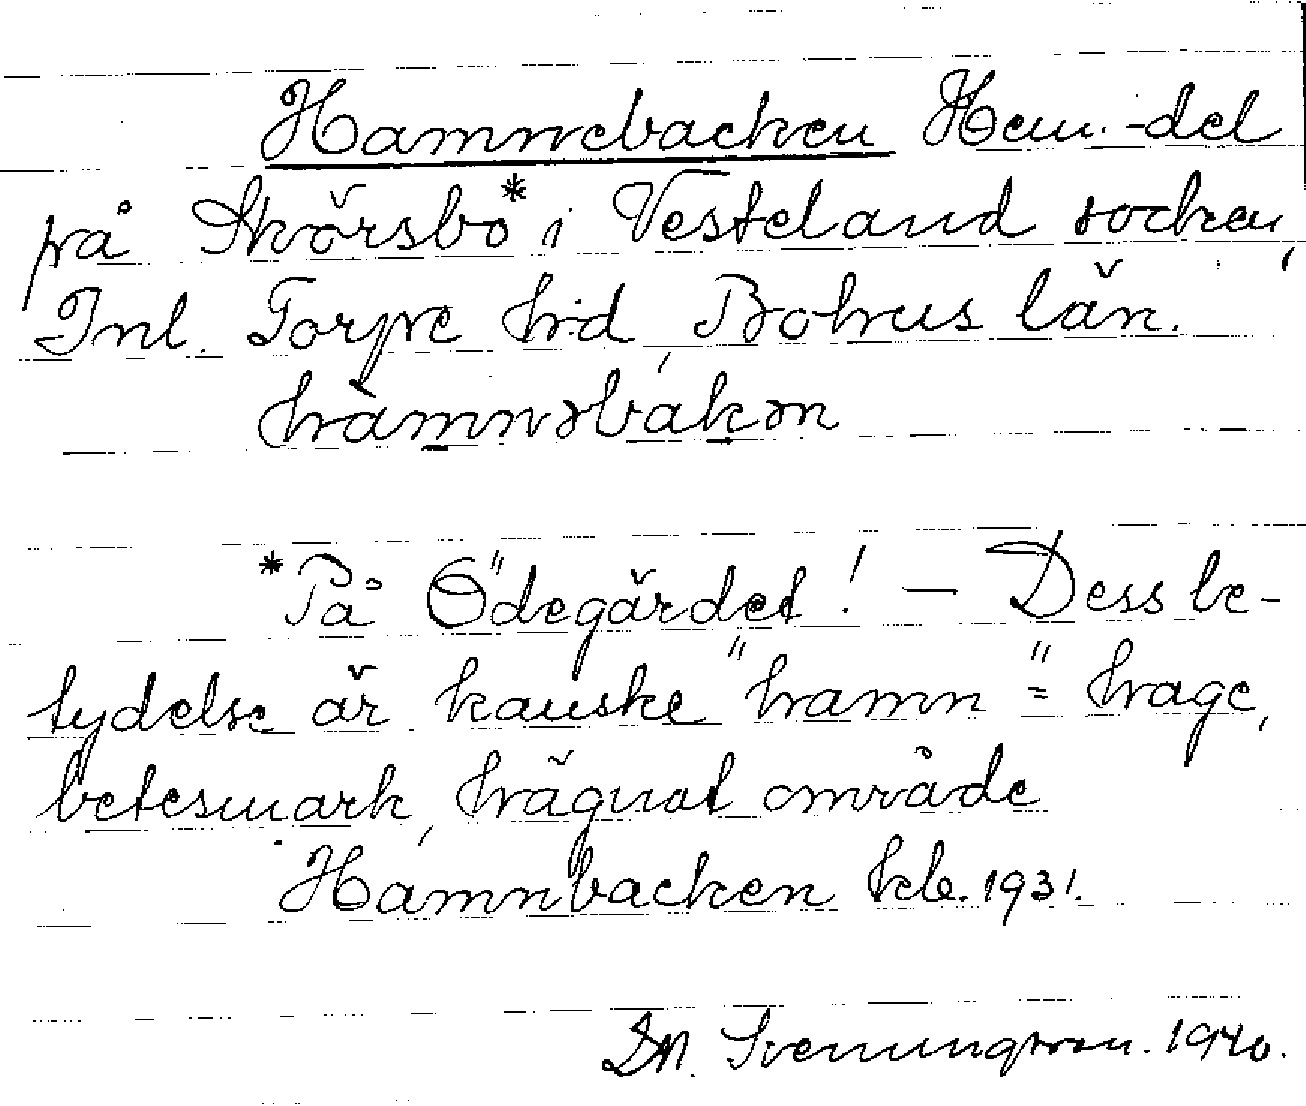 Hamnebacken Hem.-del
på Skörsbo* i Vesteland socken,
Inl. Torpe h-d, Bohus län.
hamnəbákən
*På Ödegärdet! — Dess be-
tydelse är kanske "hamn" = hage,
betesmark, hägnat område
Hamnbacken kb. 1931.
D.M. Svenungsson. 1940.